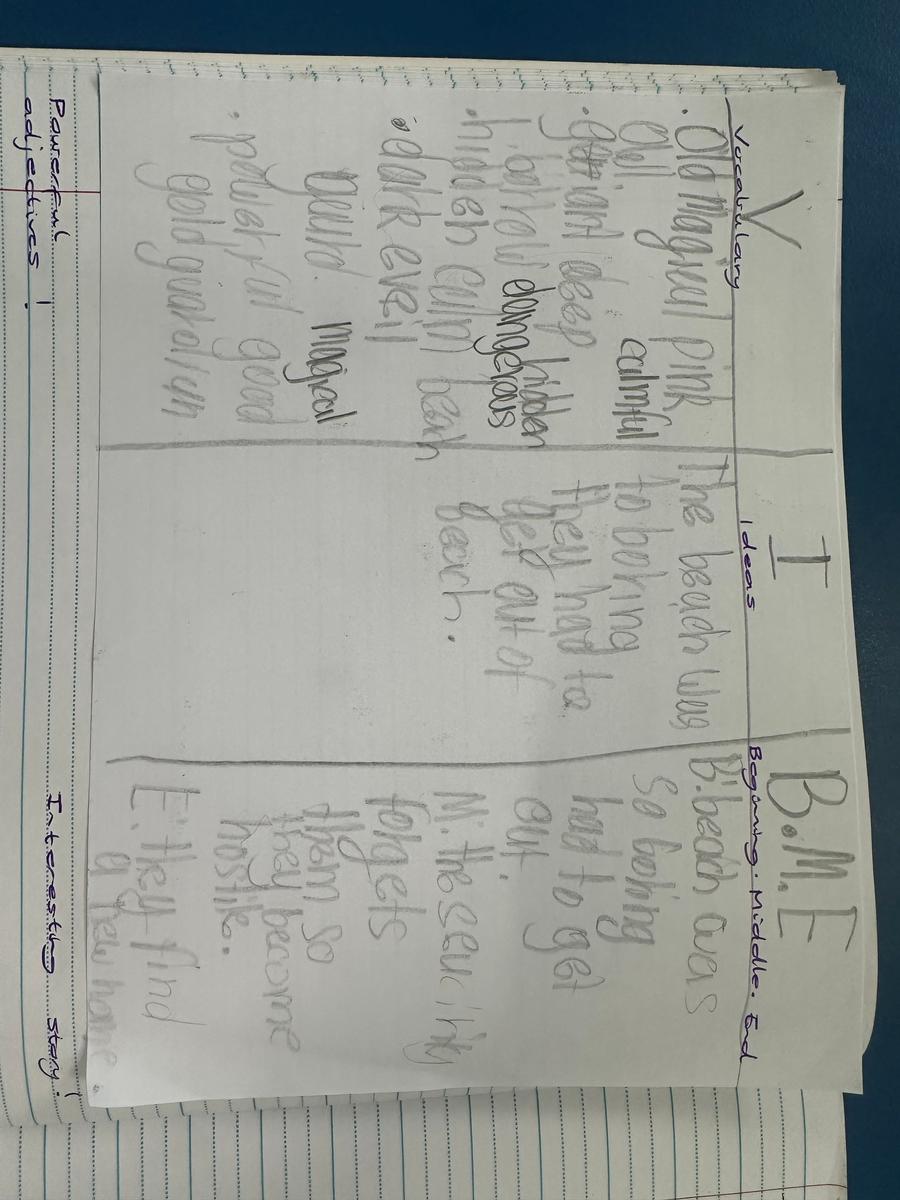 V
I
B.M.E
Vocabulary
Ideas
Begining. Middle. End
. Old magical pink
owl calmful
. gaint deep
hidden
dangerous
hiden calm beah
. dark eveil
magical
. powerful good
gold guardian
The beach was
to boking
they had to
get out of
beach.
B. beach was
So boking
had to get
out.
M. the sea
forgets
them so
they become
hostile.
E. they find
a new home.
Powerful
adjectives!
Interesting story!